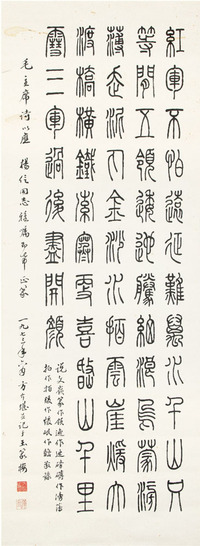 紅軍不怕遠征難萬水千山只
等閒五領逶迆騰細浪烏蒙滂
薄走泥丸金沙水拍雲崖煖大
渡橋橫鐵索寒更喜岷山千里
雪三軍過後盡開顏
說文嶺篆作領迤作迆磅礴作滂薄
毛主席诗以應
同志
一九七三年六月方介堪並記于玉篆樓